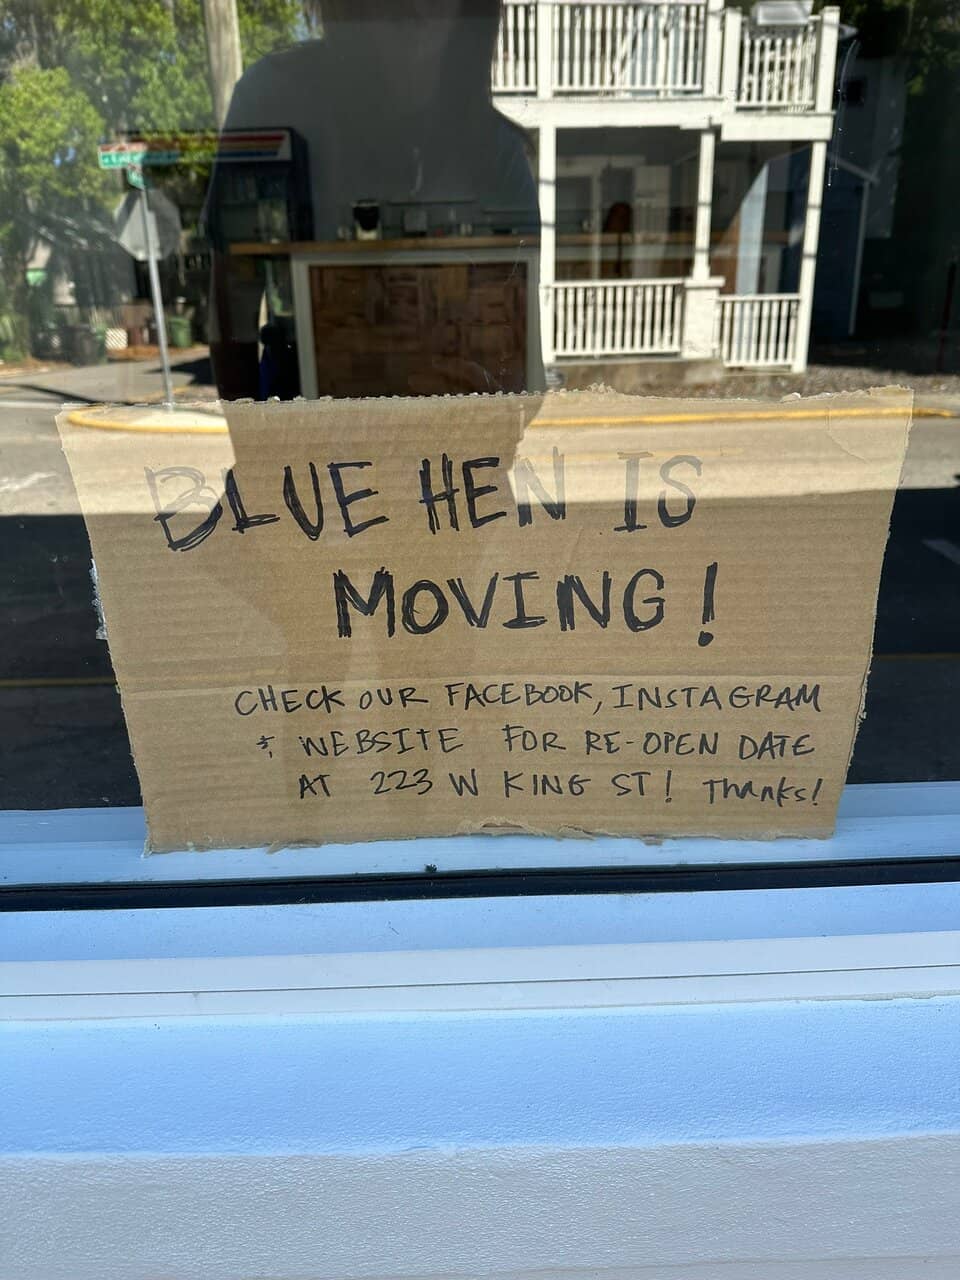 BLUE HEN IS
MOVING!
CHECK OUR FACEBOOK, INSTAGRAM
& WEBSITE FOR RE-OPEN DATE
AT 223 W KING ST! Thanks!